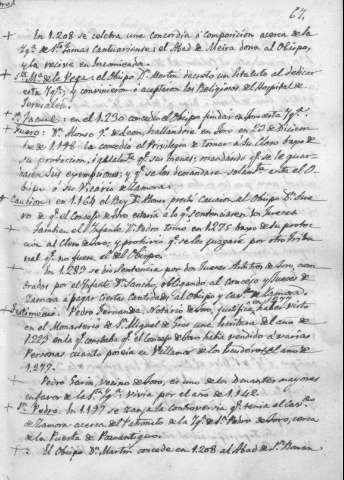 67.
En 1.208 se celebra una concordia ó composicion acerca de la
Yg.ª de S.to Tomas Cantuariense; el Abad de Meira dona al Obispo,
y la recive en Encomienda.
S.ta M.ª de la Vega: el Obispo D.n Martin decreto un Estatuto al dedicar
esta Yg.ª; y convinieron ó aceptaron los Religiosos del Hospital de
Jerusalen.
en el 1.230 concede el Obispo fundar en Toro esta Yg.ª
Fuero: D.n Alonso 9.º de Leon, hallandose en Toro en 23 de Diciem-
bre de 1194 la concedió el Privilegio de tomar á su Clero bajo de
su proteccion, é igualm.te q.e sus bienes; mandando q.e se le guar-
daran sus esempciones; y q.e les demandara solam.te ante el O-
bispo ó su Vicario de Zamora.
Caucion: en 1.164 el Rey D.n
de q.e el Concejo de Toro estaria á lo q.e sentenciaren dos Jueces
Tambien el Infante D.n Pedro tomo en 1.275 bajo de su protec-
cion al Clero de Toro; y prohivió q.e se les juzgara por otro Tribu-
nal q.e no fuere el del Obispo.
En 1.283 se dió Sentencia por dos Jueces Arbitros de Toro, nom-
brados por el Infante D.n Sancho, obligando al Concejo y Jueces de
Zamora á pagar ciertas Cantidades al Obispo y Cav.do de Zamora.
Testimonio: Pedro Fernandez, Notario de Toro, justifica haber visto
en el Monasterio de S.n Miguel de Gros una Escritura del año de
1.229 en la q.e constaba q.e el Concejo de Toro habia vendido á varias
Personas cuanto poseia en Villamor de los
1.277.
Pedro Garin, Vecino de Toro, es uno de los Donantes mayores
en favor de la S.ta Yg.ª vivia por el año de 1.142.
S.n Pedro. En 1.197 se zanja la controversia q.e tenia el Cav.do
de Zamora acerca del Patronato de la Yg.ª de S.n Pedro de Toro, cerca
de la Puerta de
El Obispo D.n Martin concede en 1.208 al Abad de S.n